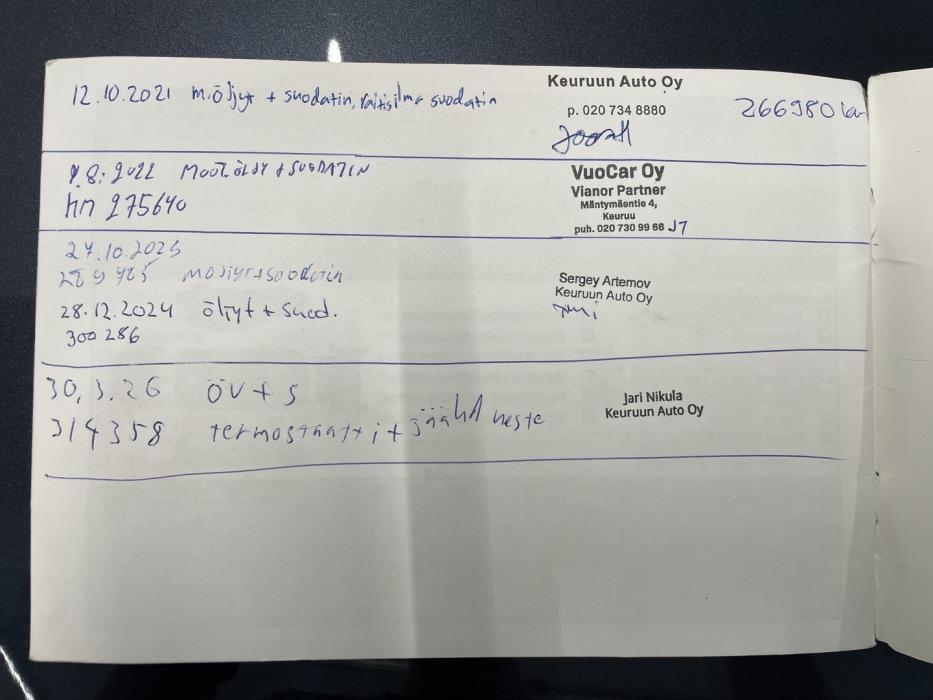 12.10.2021 m.öljyt + suodatin, raitisilma suodatin
Keuruun Auto Oy
p. 020 734 8880
266980 km
9.8.2022 MOOT.ÖLJY + SUODATIN
km 275640
VuoCar Oy
Vianor Partner
Mäntymäentie 4,
Keuruu
puh. 020 730 99 66 J7
27.10.2023
289 425 moöljyt+suodatin
28.12.2024 öljyt + suod.
300 286
Sergey Artemov
Keuruun Auto Oy
30,3.26 ÖV + S
314358 termostaatti + jäähd neste
Jari Nikula
Keuruun Auto Oy